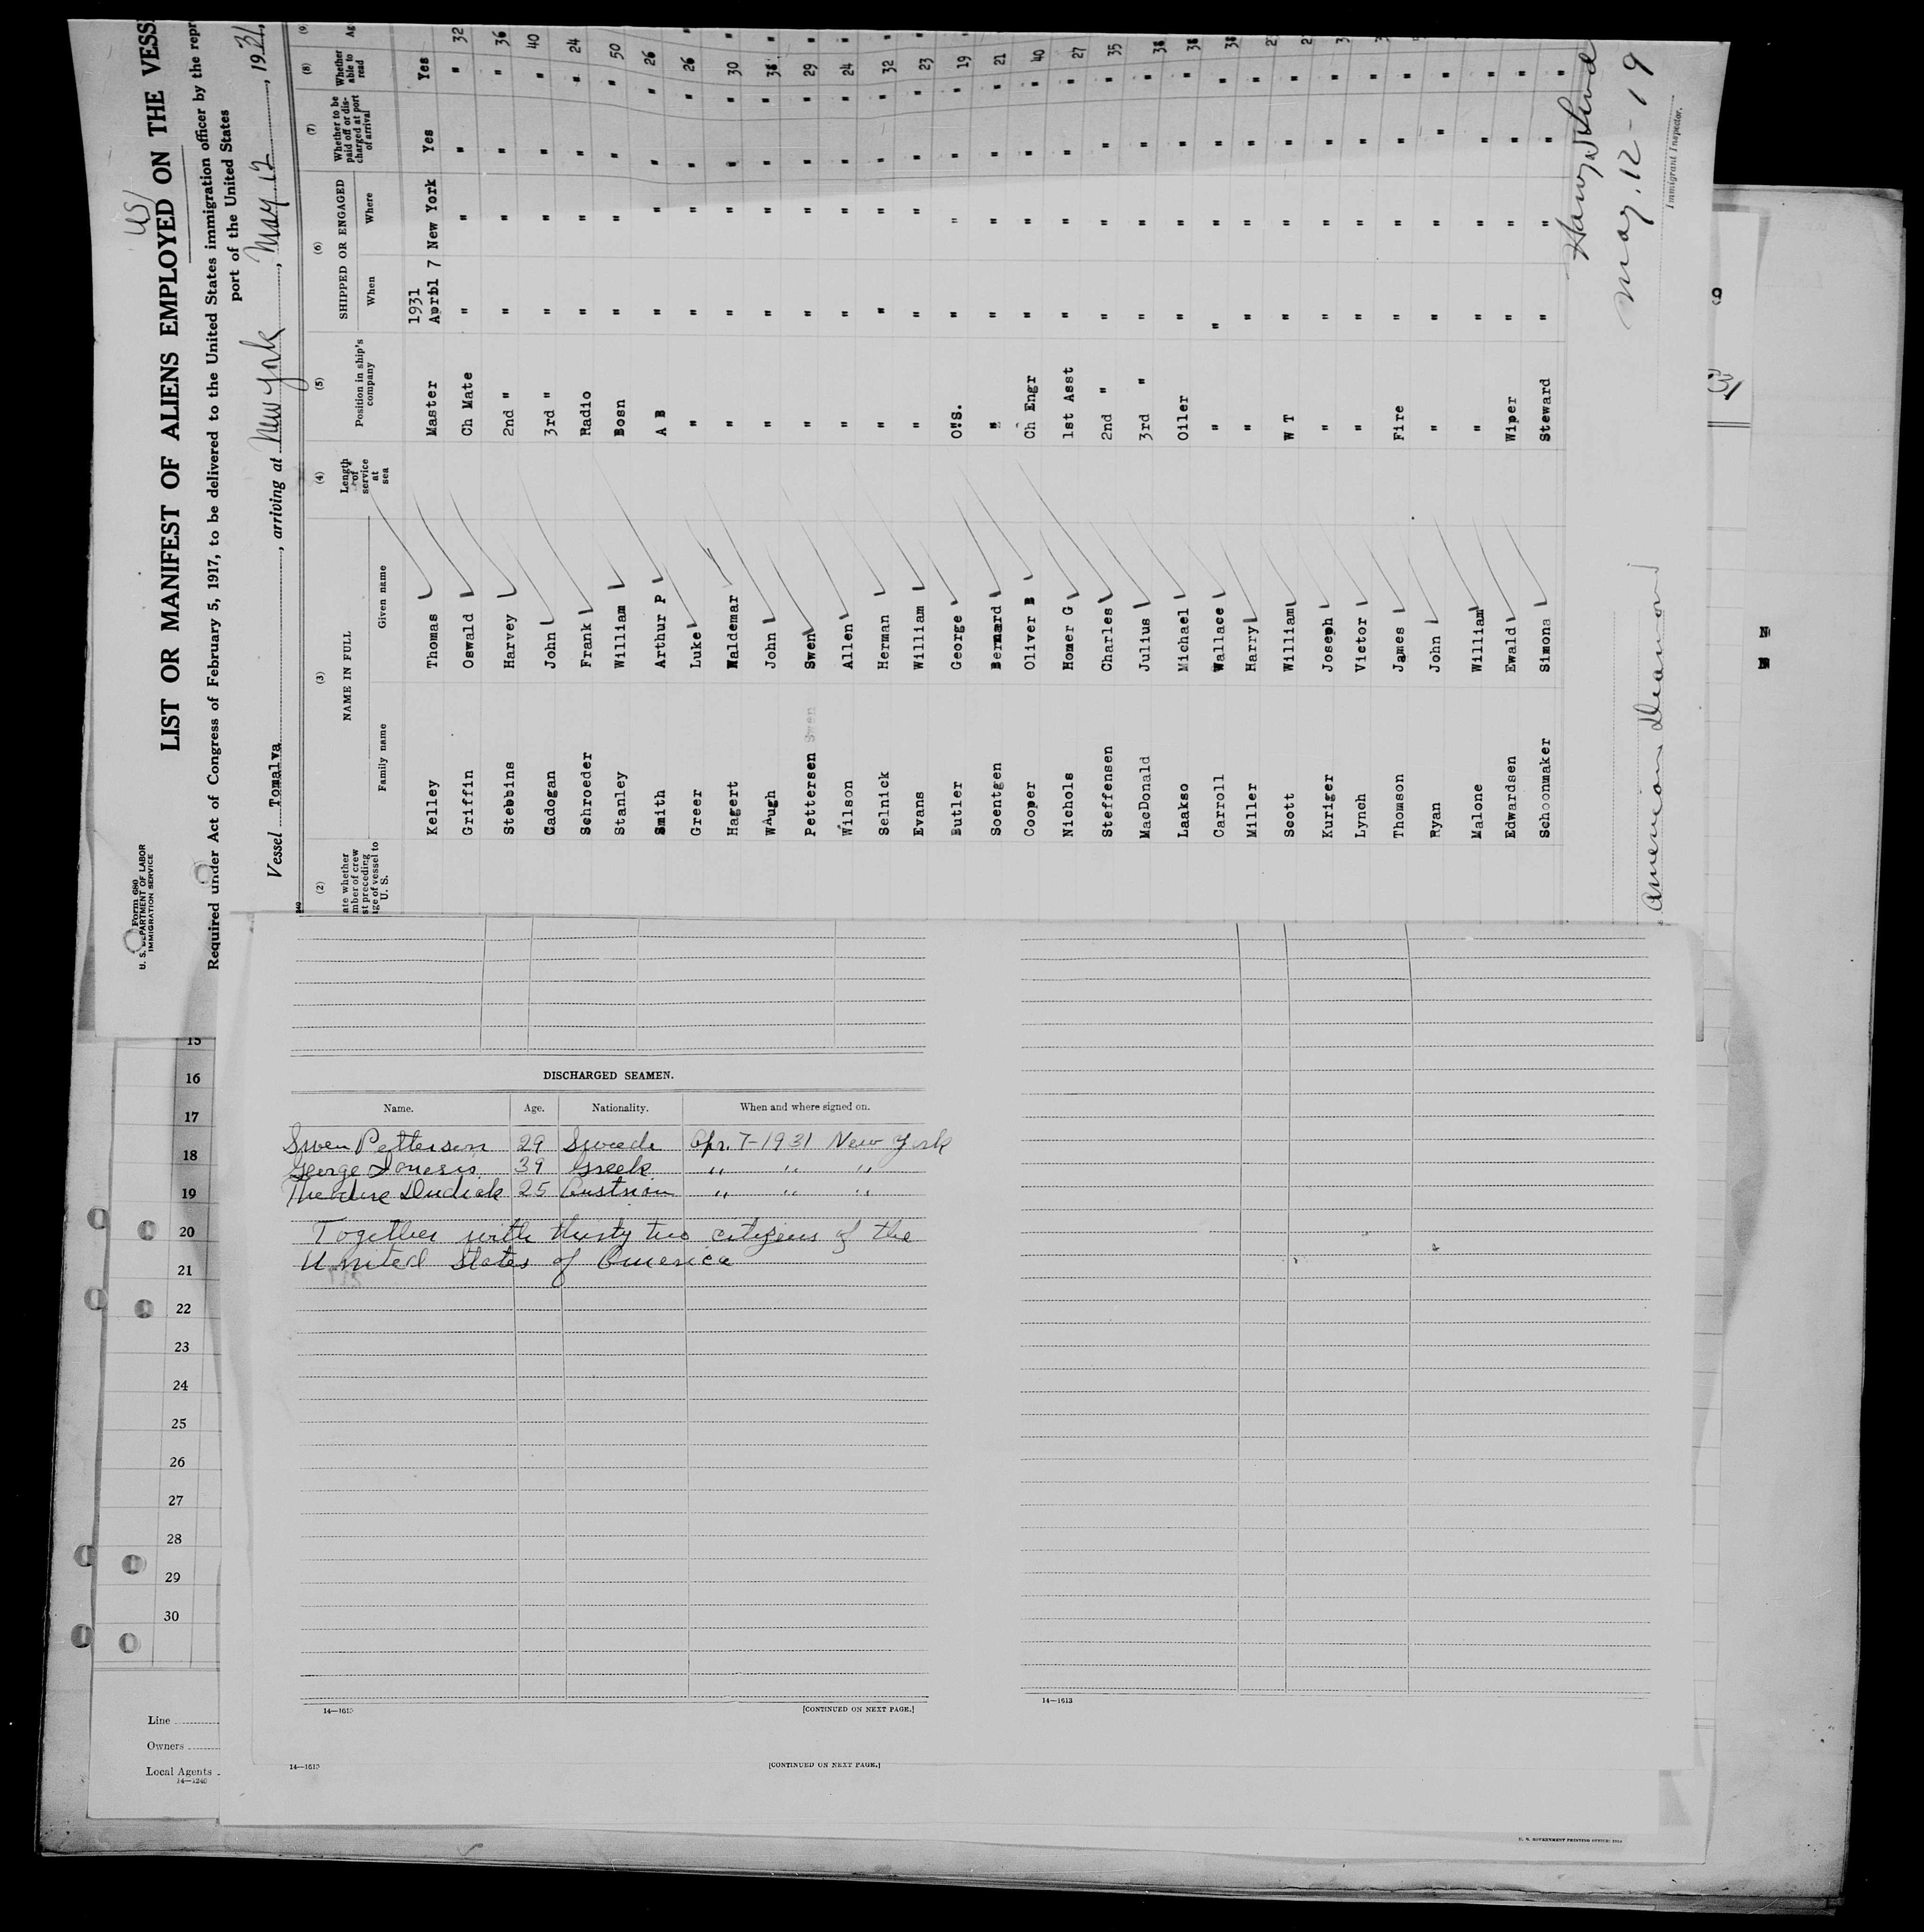 US
LIST OR MANIFEST OF ALIENS EMPLOYED ON THE VESS
Form 680
U. S. DEPARTMENT OF LABOR
IMMIGRATION SERVICE
Required under Act of Congress of February 5, 1917, to be delivered to the United States immigration officer by the repr
port of the United States
Vessel Tomalva, arriving at New York, May 12, 1931
(2) (3) (4) (5) (6) (7) (8)
NAME IN FULL Length of service at sea Position in ship's company SHIPPED OR ENGAGED Whether to be paid off or discharged at port of arrival Whether able to read
Family name Given name When Where
1931
Kelley Thomas Master Aprbl 7 New York Yes Yes
Griffin Oswald Ch Mate " " " " 32
Stebbins Harvey 2nd " " " " " 36
Cadogan John 3rd " " " " " 40
Schroeder Frank Radio " " " " 24
Stanley William Bosn " " " " 50
Smith Arthur P A B " " " " 26
Greer Luke " " " " " 26
Hagert Waldemar " " " " " 30
Waugh John " " " " " 38
Pettersen Swen " " " " " 29
Wilson Allen " " " " " 24
Selnick Herman " " " " " 32
Evans William " " " " " 23
Butler George O"S. " " " " 19
Soentgen Bernard " " " " " 21
Cooper Oliver B Ch Engr " " " " 40
Nichols Homer G 1st Asst " " " " 27
Steffensen Charles 2nd " " " " " 35
MacDonald Julius 3rd " " " " "
Laakso Michael Oiler " " " "
Carroll Wallace " " " " "
Miller Harry " " " " "
Scott William W T " " " "
Kuriger Joseph " " " " "
Lynch Victor " " " " "
Thomson James Fire " " " "
Ryan John " " " " "
Malone William " " " " "
Edwardsen Ewald Wiper " " " "
Schoonmaker Simona Steward " " " "
May. 12-19
Immigrant Inspector.
American
DISCHARGED SEAMEN.
Name. Age. Nationality. When and where signed on.
Swen Petterson 29 Swede Apr. 7-1931 New York
George 39 Greek " " "
Theodore Dudiak 25 Austrian " " "
Together with thirty two citizens of the
United States of America
14—1613 [CONTINUED ON NEXT PAGE.]
14—1613
14—1613 [CONTINUED ON NEXT PAGE.]
15
16
17
18
19
20
21
22
23
24
25
26
27
28
29
30
Line
Owners
Local Agents
14—1240